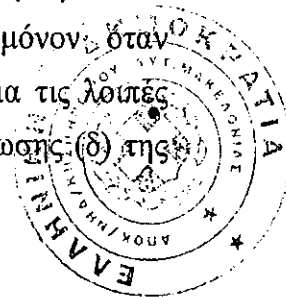 μόνον, όταν
ια τις λοιπές
ωσης (δ) της
ΕΛΛΗΝΙΚΗ ΔΗΜΟΚΡΑΤΙΑ
ΔΥΤ. ΜΑΚΕΔΟΝΙΑΣ